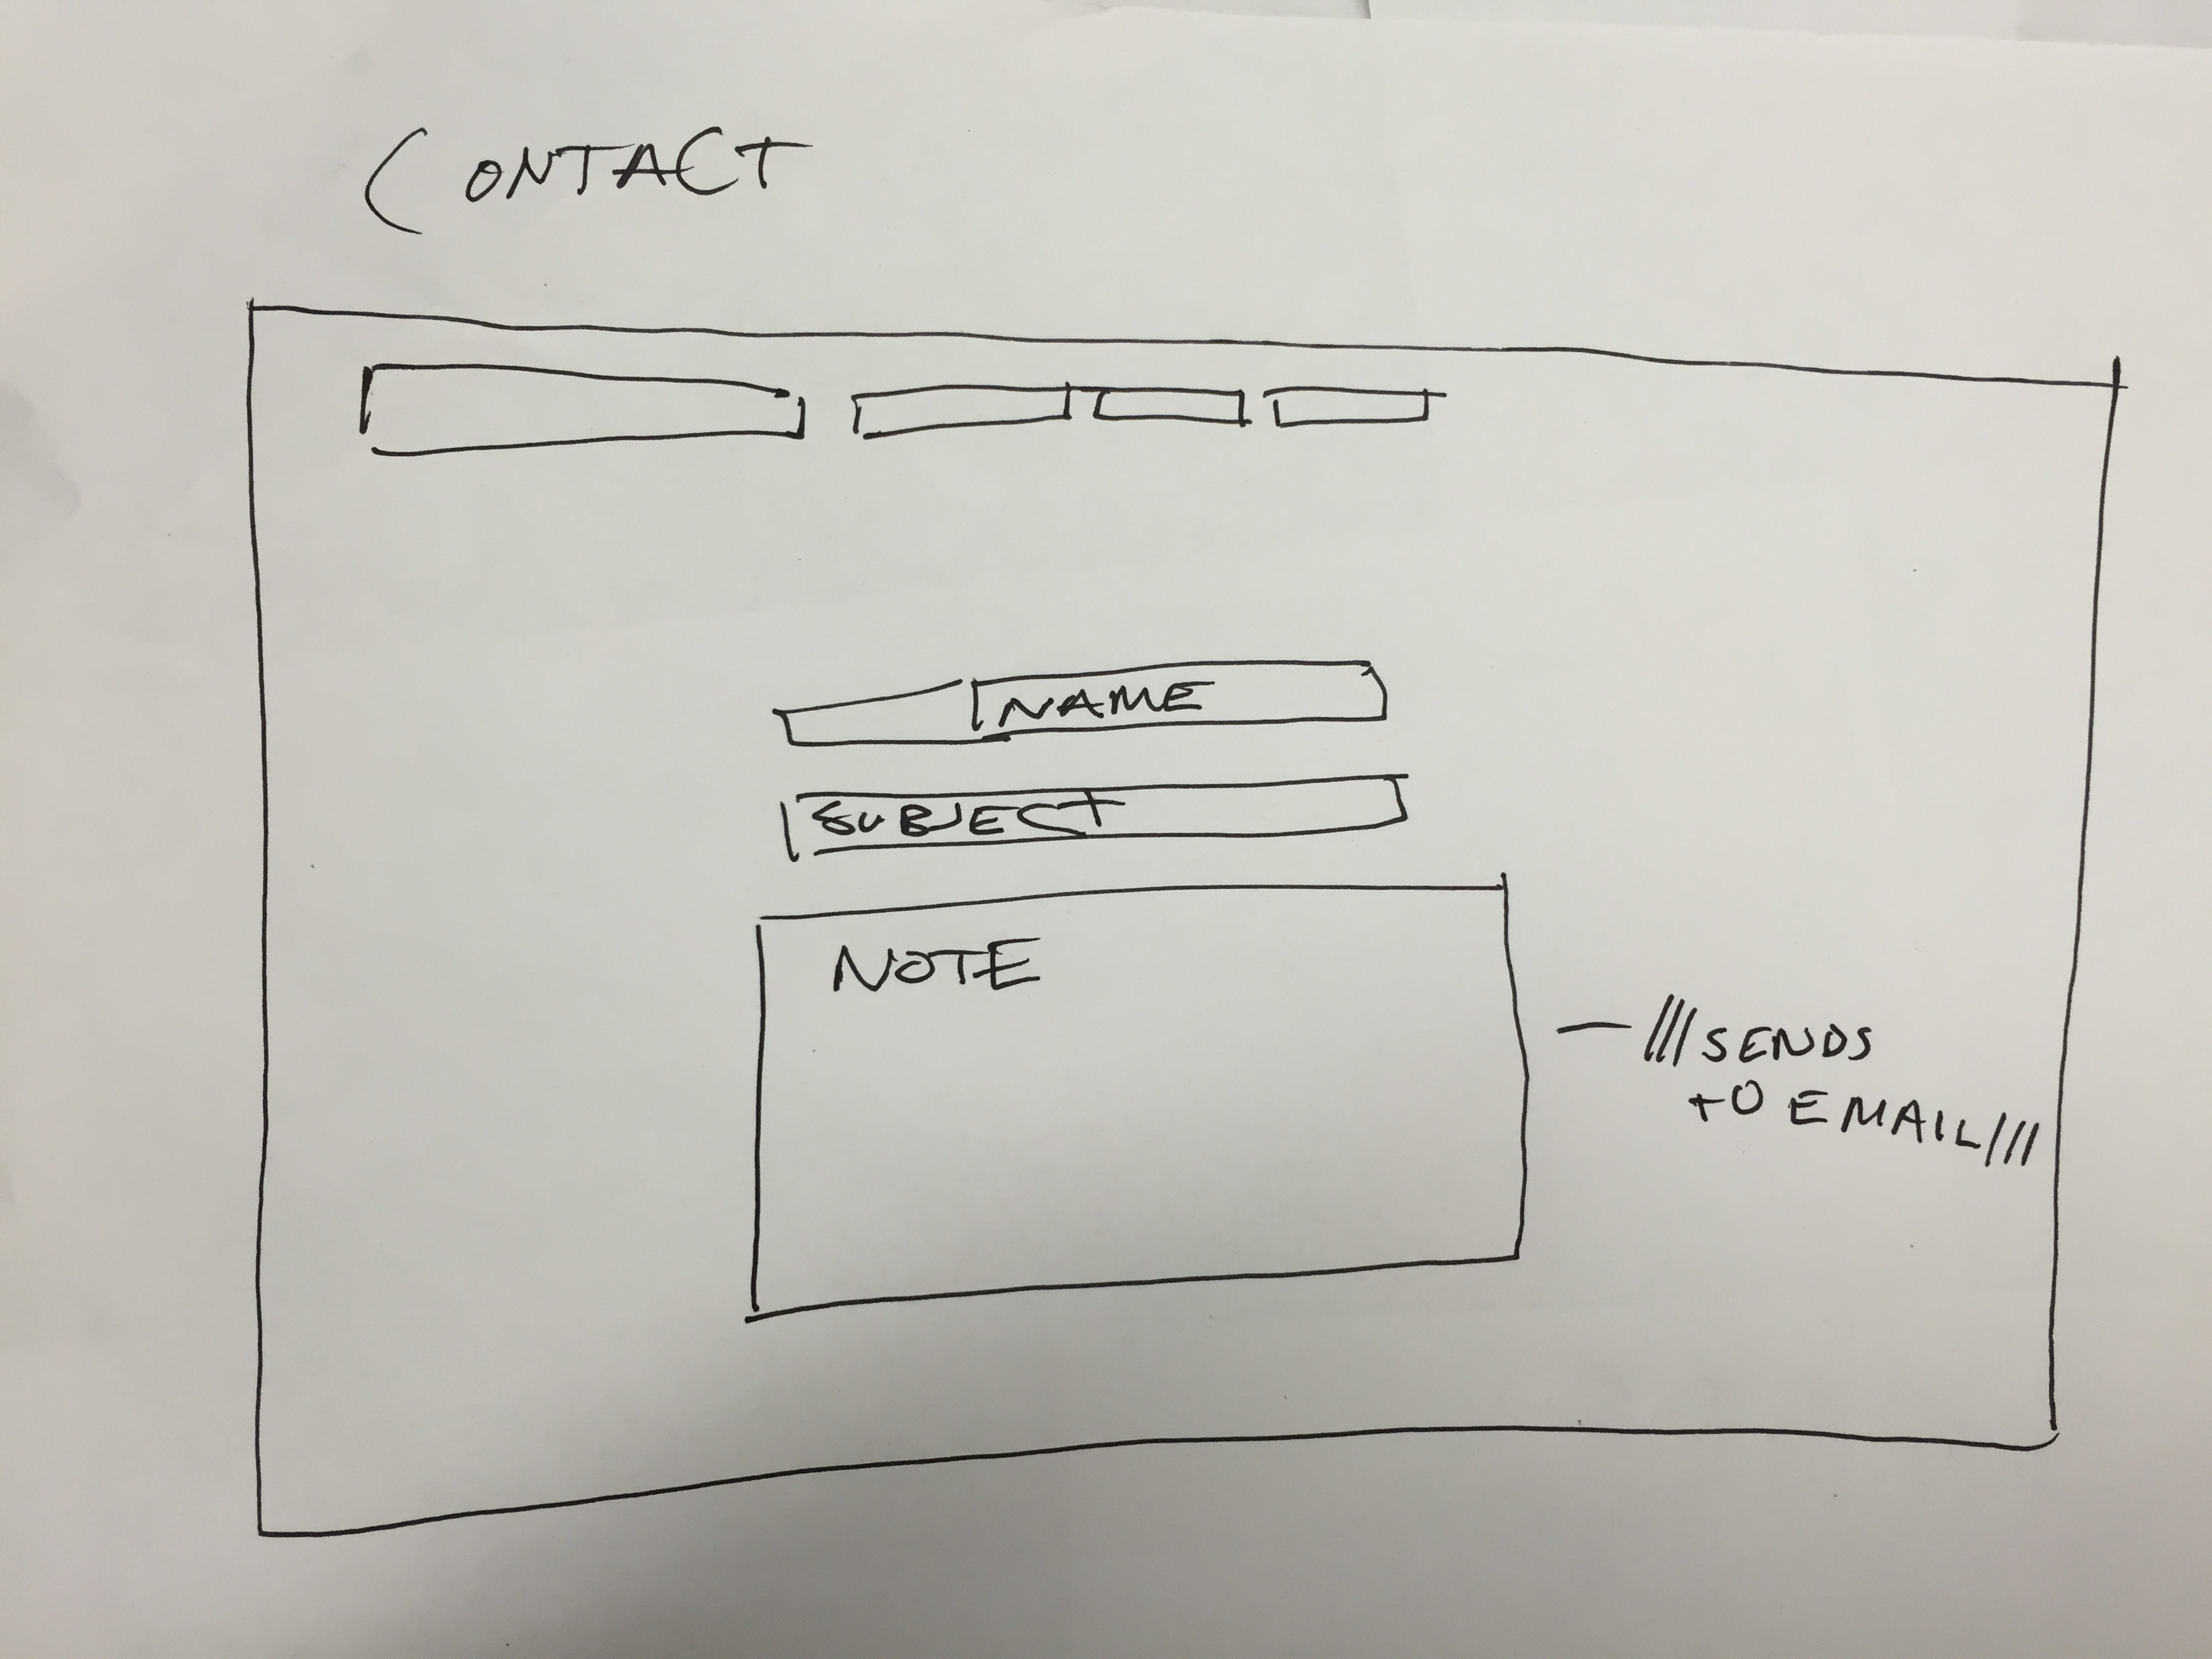 CONTACT
NAME
SUBJECT
NOTE
— /// SENDS
TO EMAIL ///